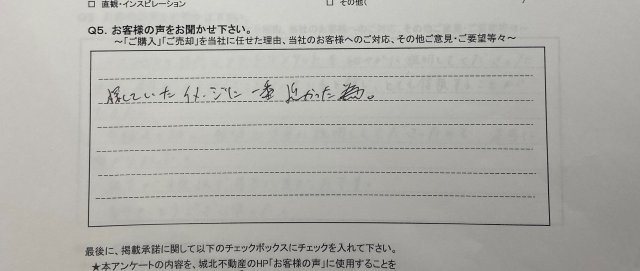 □ 直観・インスピレーション □ その他(
Q5. お客様の声をお聞かせ下さい。
～「ご購入」「ご売却」を当社に任せた理由、当社のお客様へのご対応、その他ご意見・ご要望等々～
探していたイメージに一番近かった為。
最後に、掲載承諾に関して以下のチェックボックスにチェックを入れて下さい。
★本アンケートの内容を、城北不動産のHP「お客様の声」に使用することを